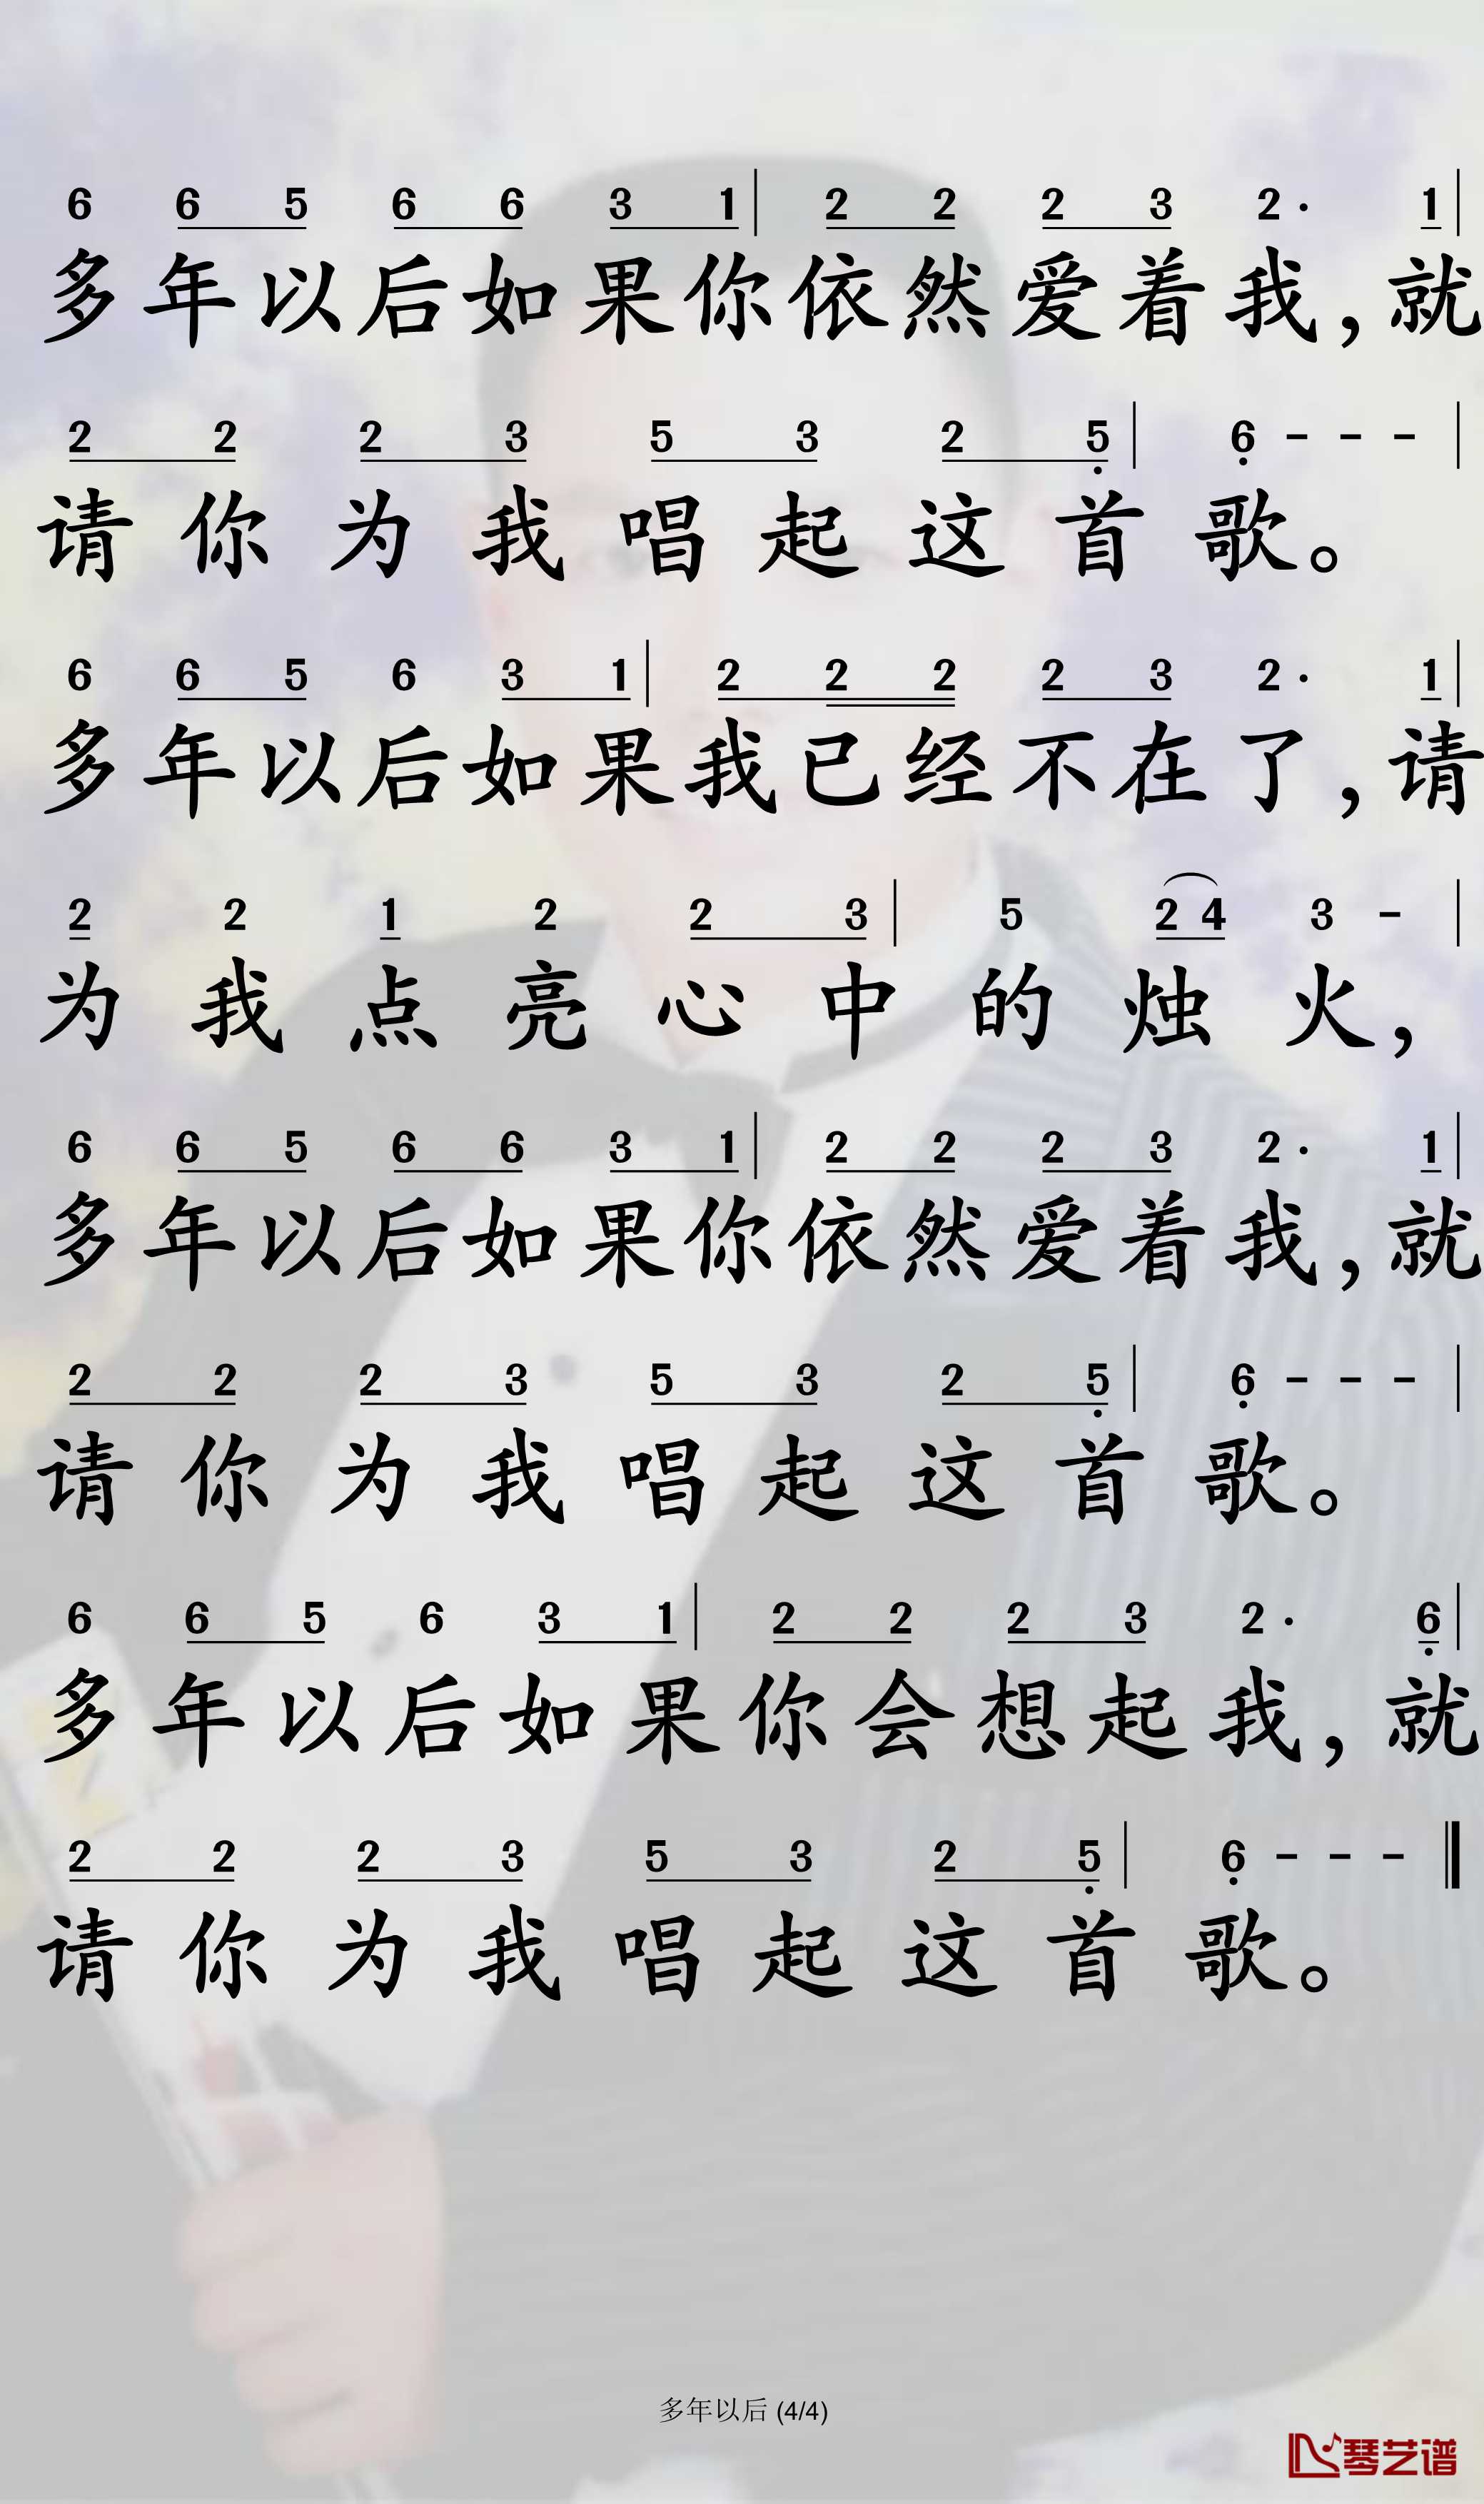 6 6 5 6 6 3 1 | 2 2 2 3 2· 1 |
多年以后如果你依然爱着我，就
2 2 2 3 5 3 2 5̣ | 6̣ - - - |
请你为我唱起这首歌。
6 6 5 6 3 1 | 2 2 2 2 3 2· 1 |
多年以后如果我已经不在了，请
2 2 1 2 2 3 | 5 2 4 3 - |
为我点亮心中的烛火，
6 6 5 6 6 3 1 | 2 2 2 3 2· 1 |
多年以后如果你依然爱着我，就
2 2 2 3 5 3 2 5̣ | 6̣ - - - |
请你为我唱起这首歌。
6 6 5 6 3 1 | 2 2 2 3 2· 6̣ |
多年以后如果你会想起我，就
2 2 2 3 5 3 2 5̣ | 6̣ - - - ‖
请你为我唱起这首歌。
多年以后 (4/4)
琴艺谱